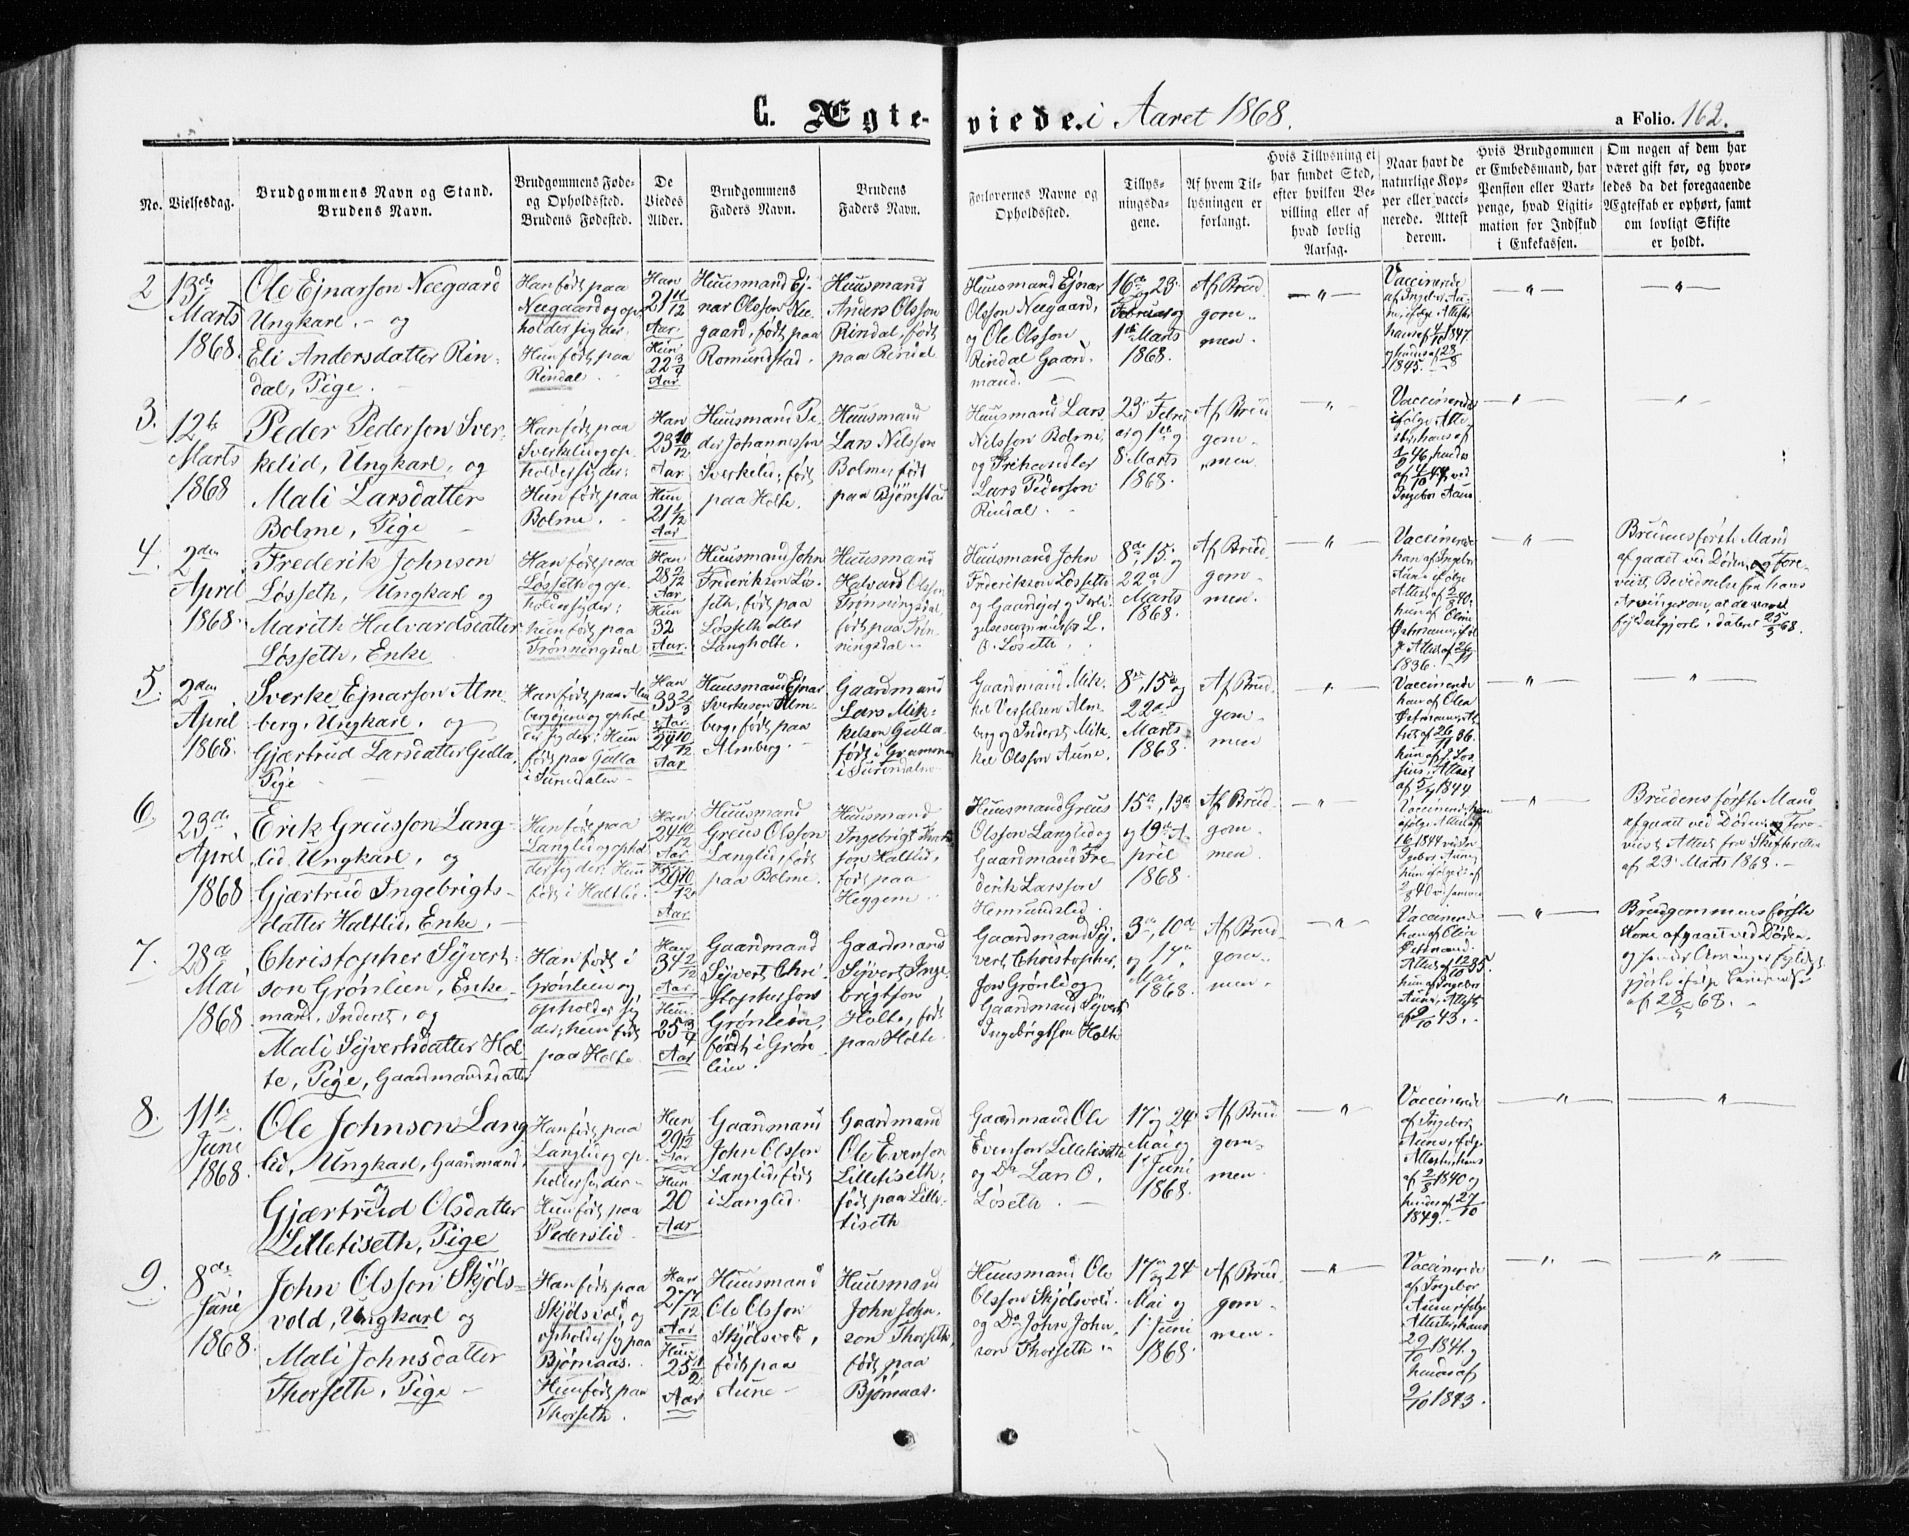 C. Ægte-
viede. i Aaret 1868.
a Folio. 162.
No.
Vielsesdag.
Brudgommens Navn og Stand.
Brudens Navn.
Brudgommens Føde-
og Opholdssted.
Brudens Fødested.
De
Viedes
Alder.
Brudgommens
Faders Navn.
Brudens
Faders Navn.
Forlovernes Navne og
Opholdssted.
Tillys-
ningsda-
gene.
Af hvem Til-
lysningen er
forlangt.
Hvis Tillysning ei
har fundet Sted,
efter hvilken Be-
villing eller af
hvad lovlig
Aarsag.
Naar havt de
naturlige Kop-
per eller vacci-
nerede. Attest
derom.
Hvis Brudgommen
er Embedsmand, har
Pension eller Vart-
penge, hvad Ligiti-
mation for Indskud
i Enkekassen.
Om nogen af dem har
været gift før, og hvor-
ledes da det foregaaende
Ægteskab er ophørt, samt
om lovligt Skifte
er holdt.
2
13de
Marts
1868.
Ole Ejnarson Neegaard
Ungkarl. - og
Eli Andersdatter Rin-
dal, Pige. -
Han født paa
Neegaard og op-
holder sig der.
Hun født paa
Rindal.
Han
21 11/12
Aar
Hun
22 3/4
Aar
Huusmand Ej-
nar Olsson Nee-
gaard, født paa
Romundstad.
Huusmand
Anders Olsson
Rindal, født
paa Rindal
Huusmand Ejnar
Olsson Neegaard,
og Ole Olsson
Rindal Gaard-
mand.
16de og 23
Februar og
1ste Marts
1868.
Af Brud-
gom-
men.
Vaccinerede
af Ingebor Au-
ne, ifølge Attester
hans af 4/10 1847
og hendes af 28/8
1845.
3.
12te
Marts
1868
Peder Pederson Sver-
kelid, Ungkarl, og
Mali Larsdatter
Bolme, Pige -
Han født paa
Sverkelid og op-
holder sig der;
Hun født paa
Bolme.
Han
23 10/12
Aar
Hun
21 5/12
Aar
Huusmand Pe-
der Johannesson
Sverkelid, født
paa Holte.
Huusmand
Lars Nilsson
Bolme, født
paa Bjørnstad
Huusmand Lars
Nilsson Bolme,
og Frihandler
Lars Pederson
Rindal.
23 Febru-
ar, og 1ste og
8 Marts
1868.
Af Brud
gom-
men.
Vaccinerede
ifølge Atte-
ster, hans af
46, hendes
ved
Ingebor Aune
4.
2den
April
1868.
Frederik Johnson
Løsseth, Ungkarl og
Marith Halvardsdatter
Løsseth, Enke
Han født paa
Løsseth og op-
holder sig der;
hun født paa
Trønningsdal
Han
28 2/12
Aar
Hun
32
Aar.
Huusmand John
Frederikson Løs-
seth, født paa
Løsseth eller
Langholte.
Huusmand
Halvard Olsson
Trønningsdal,
født paa Trøn-
ningsdal.
Huusmand John
Frederikson Løsseth
og Gaardejer og Forli-
gelsescommissær L.
O. Løseth.
8de, 15 og
22de
Marts
1868.
Af Brud-
gom-
men.
Vaccinerede
han af Ingebor
Aune ifølge
Attest af 2/8 40,
hun af Oline
Østmann, iføl-
ge Attest af
1836.
Brudens første Mand
afgaaet ved Døden, og Fore-
viist Bevidnelse fra hans
Arvinger om, at de vare
fyldestgjorte, dateret 25/3 68.
5.
2den
April
1868.
Sverke Ejnarson Alm-
berg, Ungkarl, og
Gjærtrud Larsdatter Gulla,
Pige
Han født paa Alm-
bergøjen og ophol-
der sig der; Hun
født paa Gulla
i Surendalen
Han
33 2/3
Aar
Hun
24 10/12
Aar
Huusmand Ejnar
Sverkeson Alm-
berg, født paa
Almberg. -
Gaardmand
Lars Mik-
kelson Gulla
født i Grammen
i Surendalen
Gaardmand Mik-
kel Vesselsen Alm-
berg og Inderst Mik-
kel Olsson Aune.
8de, 15de og
22de
Marts
1868.
Af Brud-
gom-
men
Vaccinerede
han af Olea
Østmann, At-
test af 26/11 36.
hun af P. Los-
sius, Attest
af 5/9 1844
6.
23de
April
1868
Erik Greusson Lang-
lid, Ungkarl, og
Gjærtrud Ingebrigts-
datter Haltlid, Enke. -
Han født paa
Langlid og ophol-
der sig der; Hun
født i Haltlid.
Han
24 10/12
Aar
Hun
29 10/12
Aar
Huusmand
Greus Olsson
Langlid, født
paa Bolme.
Huusmand
Ingebrigt
son Haltlid,
født paa
Heggem.
Huusmand Greus
Olsson Langlid og
Gaardmand Fre-
derik Larsson
Hermundslid.
15de, 13de
og 19de A-
pril
1868.
Af Brud
gom-
men.
Vaccinerede, han
ifølge Attest af
16/ 1844 ved
Ingebor Aune,
hun ifølge
2/8 40 ved samme
Brudens første Mand
afgaaet ved Døden, og Fore-
viist Attest fra Skifteretten
af 23 Marts 1868. -
7.
28de
Mai
1868
Christopher Syvert-
son Grønlien, Enke-
mand, Inderst, og
Mali Syvertsdatter Hol-
te, Pige, Gaardmandsdatter
Han født i
Grønlien og
opholder sig
der; hun født
paa Holte.
Han
34 2/12
Aar
Hun
25 3/4
Aar
Gaardmand
Syvert Chri-
stophersson
Grønlein,
født i Grøn-
lein.
Gaardmand
Syvert Inge-
brigtson
Holte, født
paa Holte.
Gaardmand Sy-
vert Christopher-
son Grønli og
Gaardmand Syvert
Ingebrigtson Holte
3de, 10de
og 17de
Mai
1868.
Af Brud
gom-
men.
Vaccinerede
han af Olea
Østmand.
Attest af 12/10 35.
hun af Ingebor
Aune, Attest
af 9/10 43.
Brudgommens første
Kone afgaaet ved Døden,
og hendes Arvinger fyldest-
gjorte ifølge
af 28/5 68.
8.
11te
Juni
1868.
Ole Johnson Lang-
lid, Ungkarl, Gaardmand,
og
Gjærtrud Olsdatter
Lilletiseth, Pige
Han født paa
Langlid og op-
holder sig der -
Hun født paa
Pederslid.
Han
29 1/2
Aar
Hun
20
Aar
Gaardmand
John Olsson
Langlid, født
i Langlid.
Gaardmand
Ole Evenson
Lilletiseth,
født paa Lille-
tiseth
Gaardmand Ole
Evenson Lilletiseth
og Do Lars O.
Løseth. -
17 og 24
Mai og
1ste Juni
1868.
Af Brud
gom-
men
Vaccinerede
af Ingebor
Aune, ifølge
Attester, hans
af 2/8 1840 og
hendes af 27/10
1849. -
9.
8de
Juni
1868.
John Olsson Skjøls-
vold, Ungkarl og
Mali Johnsdatter
Thorseth, Pige -
Han født paa
Skjølsvold, og
opholder sig paa
Bjørnaas.
Hun født paa
Thorseth.
Han
27 7/12
Aar
Hun
25 1/2
Aar
Huusmand
Ole Olsson
Skjølsvold,
født paa
Aune -
Huusmand
John John-
son Thorseth,
født paa
Bjørnaas.
Huusmand Ole
Olsson Skjølsvold
og Do John John-
son Thorseth.
17de og 24
Mai og
1 Juni
1868.
Af Brud-
gom-
men.
Vaccinerede
af Ingebor
Aune, ifølge
Attester, hans
29/10 1841 og
hendes af
9/10 1843.